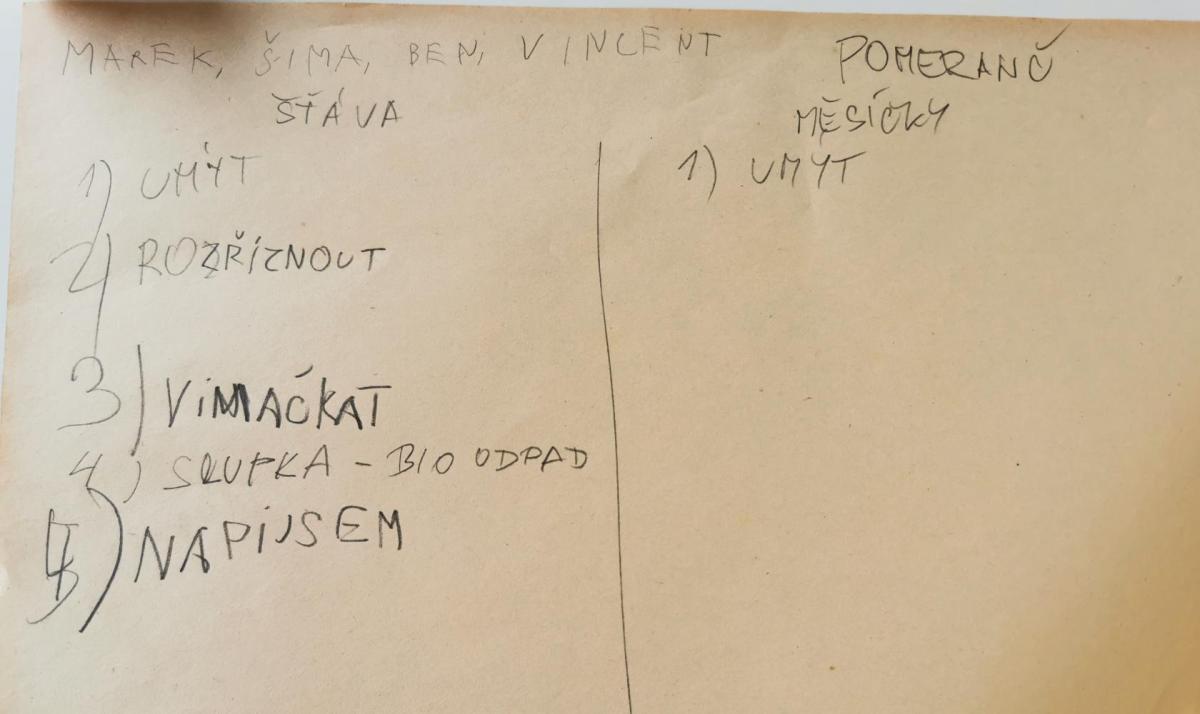 MAREK, ŠIMA, BEN, VINCENT
ŠŤÁVA
1) UMÝT
2) ROZŘÍZNOUT
3) VIMAČKAT
4) SLUPKA - BIO ODPAD
5) NAPIJSEM
POMERANČ
MĚSÍČKY
1) UMÝT